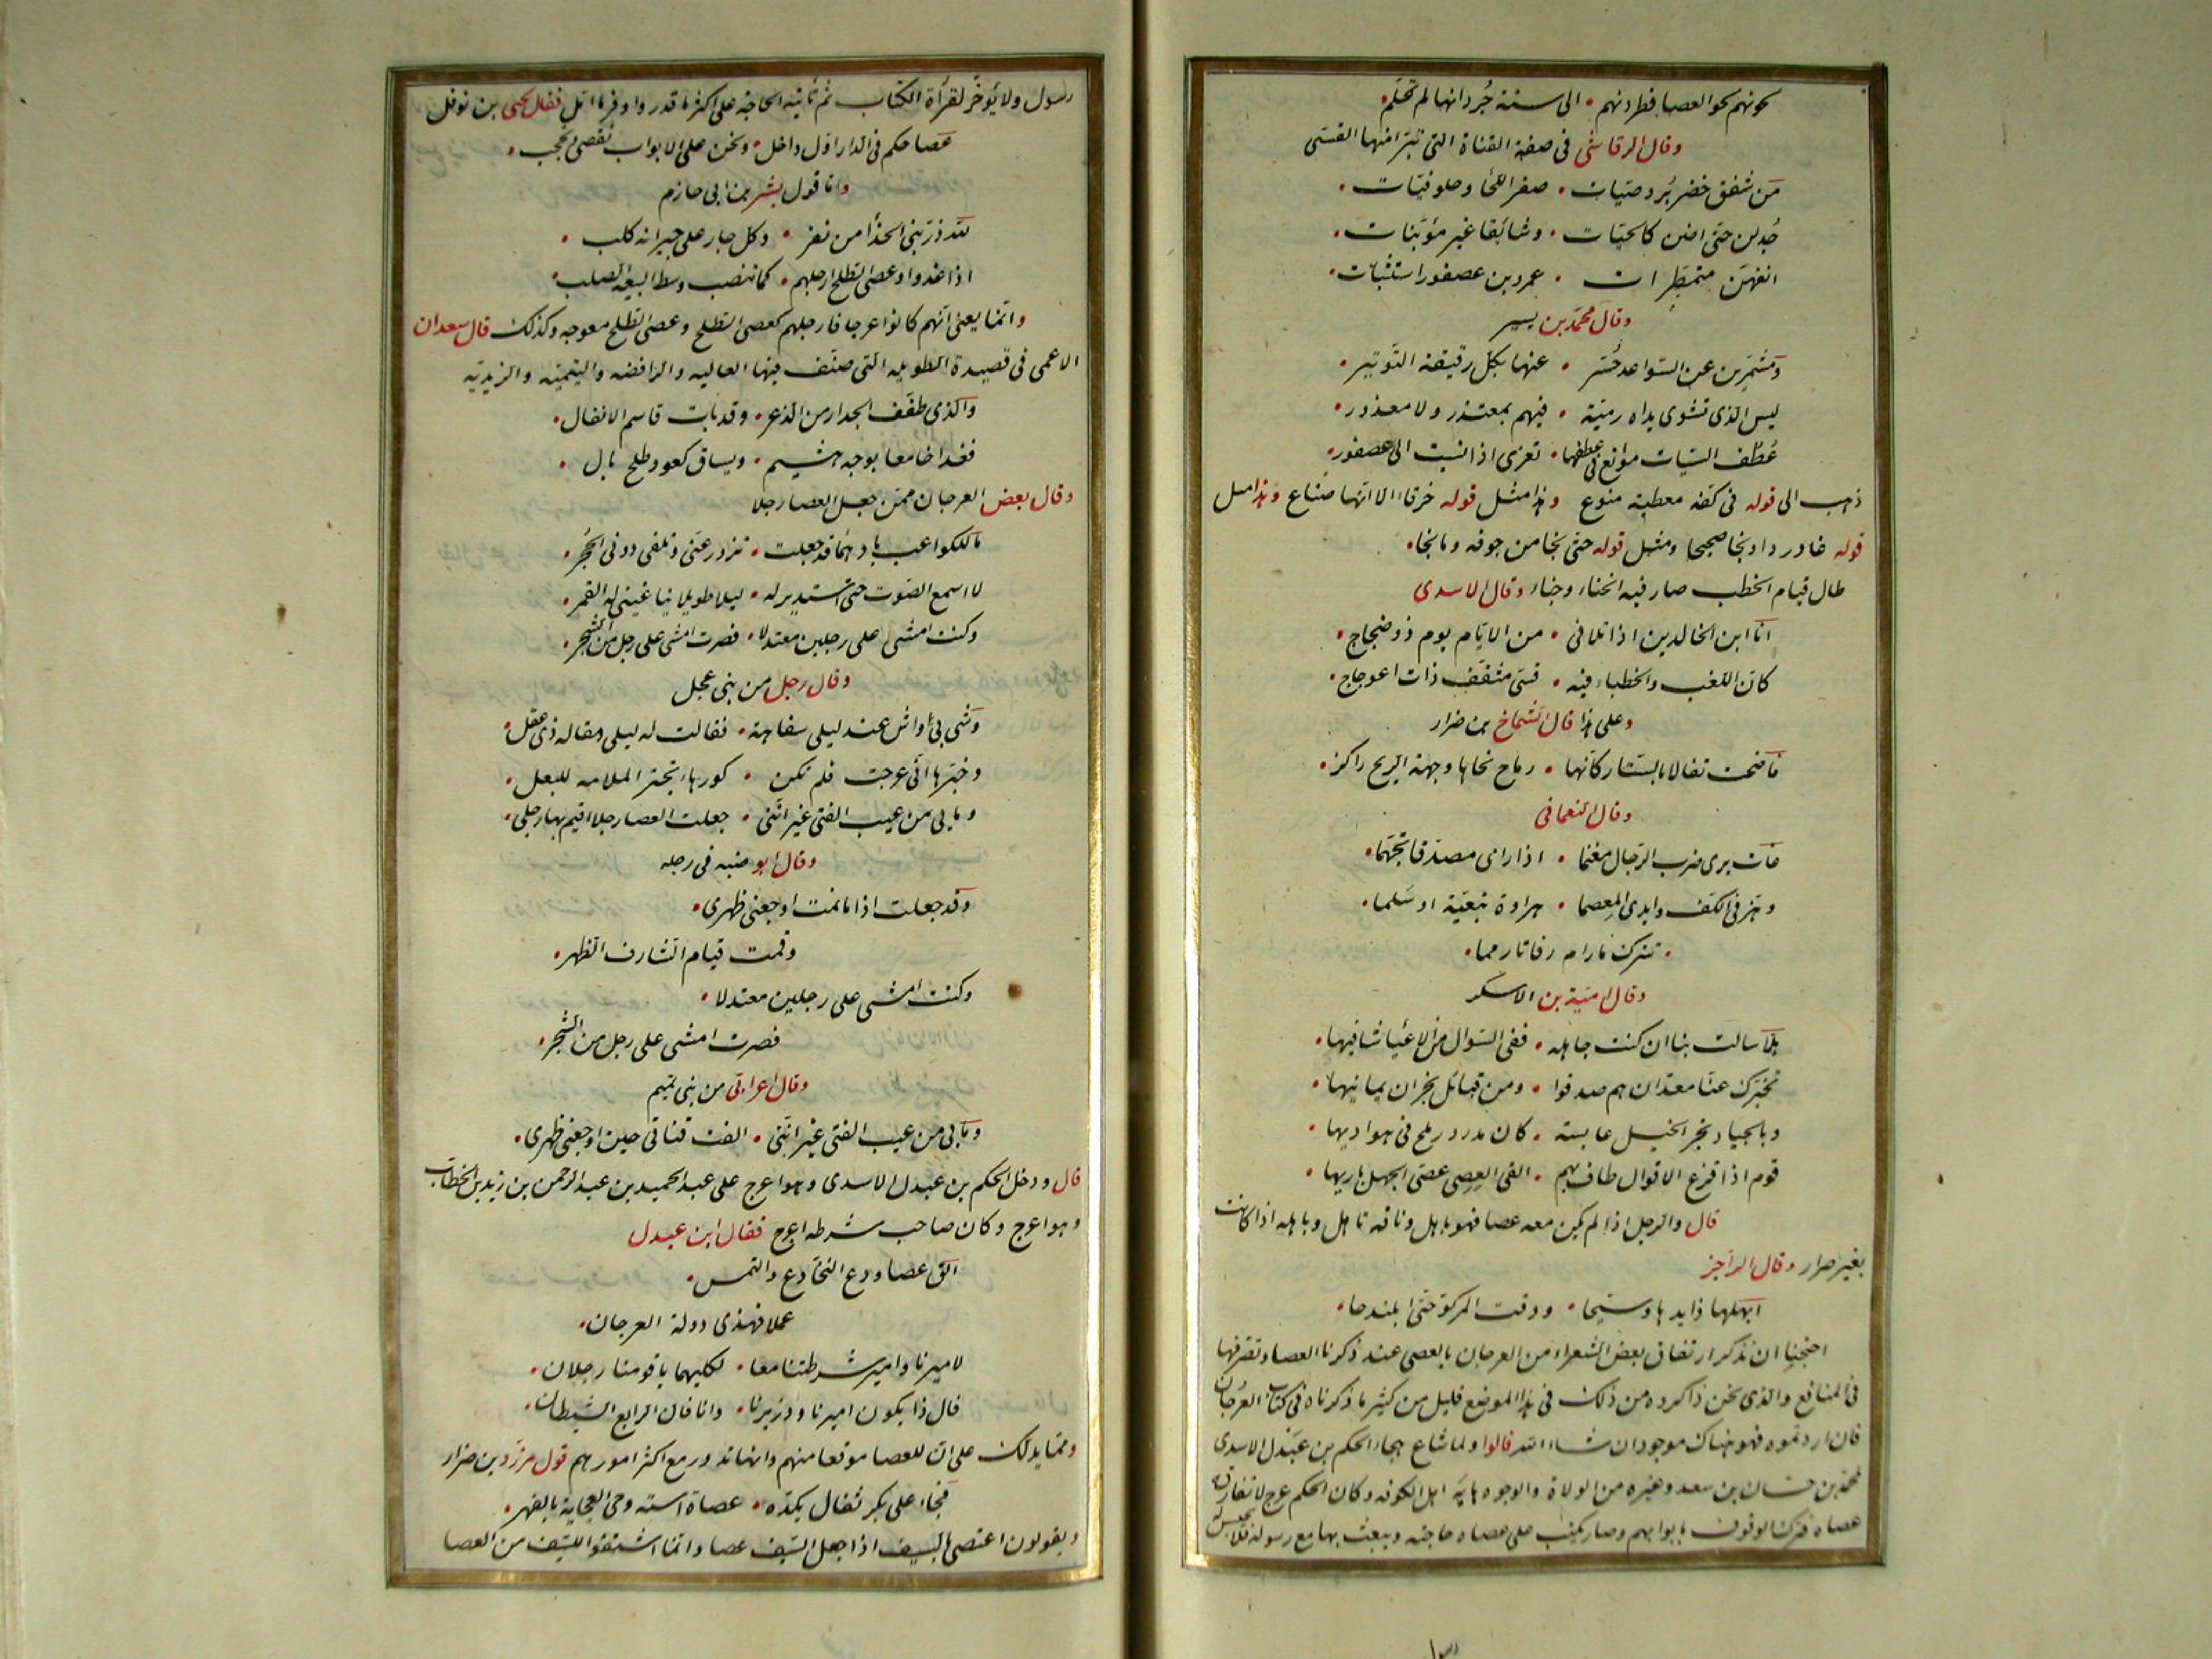 نحونهم نحو العصا فطردنهم الى سنة جُرذانها لم تحلم
وقال الرقاشي في صفة القناة التي تبرا منها القسى
من شقق خضر بُروصيّات صفر اللحا وخلوقيّات
جُدلن حتى اضن كالحيّات وشائقا غير مؤبّنات
انفهن متمطرات عمرو بن عصفور استثبات
وقال محمد بن يسير
ومشمّرين عن السّواعد حُسّر عنها بكل رقيقة التوتير
ليس الذي تشوى يداه رميّة فيهم بمعتذر ولا معذور
عُطُف السّيات موانع في عطفها تعزى اذا نسبت الى عصفور
ذهب الى قوله في كفه معطية منوع وهذا مثل قوله خرقاء الا انها صناع وهذا مثل
قوله غادر داء ونجا صحيحا ومثل قوله حتى نجا من جوفه وما نجا
طال قيام الخطب صار فيه انحناء وجناء وقال الاسدى
انا ابن الخالدين اذا تلاقى من الايّام يوم ذو ضجاج
كان اللغب والخطباء فيه قسى مثقف ذات اعوجاج
وعلى هذا قال شماخ بن ضرار
فاضحت تفالا بالستار كانها رماح نحاها وجهة الريح راكز
وقال النعماني
خات يرى ضرب الرجال مغنما اذا راى مصدقا تجهما
وهز في الكف وابدى المعصما هراوة نبعيّة او سلما
تترك ما رام رفاتا رمما
وقال اميّة بن الاسكر
هلا سالت بنا ان كنت جاهله ففي السّوال من الاعيا شافيها
تخبرك عنا معدّ ان هم صدقوا ومن قبائل نجران يمانيها
وبالجياد نجر الخيل عابسة كان مدرور ملح في هواديها
قوم اذا قزع الاقوال طاف بهم القى العصى عصى الجهل باريها
قال والرجل اذا لم يكن معه عصا فهو باهل وناقه باهل وباهله اذا كانت
بغير صرار وقال الراجز
ابهلها ذايدها وسبحا ودقت المركو حتى ابلندحا
احتجنا ان نذكر ارتفاق بعض الشعراء من العرجان بالعصى عند ذكرنا العصا وتصرفها
في المنافع والذى نحن ذاكروه من ذلك في هذا الموضع قليل من كثير ما ذكرناه في كتاب العُرجان
فان اردتموه فهو هناك موجود ان شاء الله قالوا ولما شاع هجاء الحكم بن عَبدل الاسدى
لمحمد بن حسان بن سعد وغيره من الولاة والوجوه هابه اهل الكوفه وكان الحكم اعرج لا تفارقه
عصاه فترك الوقوف بابوابهم وصار يكتب على عصاه حاجته ويبعث بها مع رسوله فلا يحبس له
رسول
رسول ولا يؤخّر لقرأة الكتاب ثم تأتيه الحاجة على اكثر ما قدر واوفر ما امل فقال يحيى بن نوفل
عصا حكم في الدار اوّل داخل ونحن على الابواب نقصى ونحجب
واما قول بشر بن ابى حازم
لله درّ بنى الحذأ من نفر وكل جار على جيرانه كلب
اذا غدوا وعصى الطلح ارجلهم كما تنصب وسط البيعه الصلب
وانما يعنى انهم كانوا عرجا فارجلهم كعصى الطلح وعصى الطلح معوجه وكذلك قال سعدان
الاعمى في قصيدة الطويله التى صنف فيها العاليه والرافضه والتيميّه والزيديّه
والذى طفف الجدار من الذعر وقد بات قاسم الانفال
فغدا خامعا بوجه هشيم وبساق كعود طلح بال
وقال بعض العرجان ممن جعل العصا رجلا
ما للكواعب يا دهما قد جعلت تزور عنى وتلقى دونى الحجُر
لا اسمع الصوت حتى استديرله ليلا طويلا يناغينى له القمر
وكنت امشى على رجلين معتدلا فصرت امشى على رجل من الشجر
وقال رجل من بنى عجل
وشى بى واش عند ليلى سفاهة فقالت له ليلى مقاله ذى عقل
وخبّرها انى عرجت فلم تكن كورهاء تجتر الملامه للبعل
وما بى من عيب الفتى غير اننى جعلت العصا رجلا اقيم بها رجلى
وقال ابو ضبه في رجله
وقد جعلت اذا ما نمت اوجعنى ظهرى
وقمت قيام الشارف الظهر
وكنت امشى على رجلين معتدلا
فصرت امشى على رجل من الشجر
وقال اعرابى من بنى تميم
وما بى من عيب الفتى غير اننى الفت قناتى حين اوجعنى ظهرى
قال ودخل الحكم بن عبدل الاسدى وهو اعرج على عبد الحميد بن عبد الرحمن بن زيد بن الخطاب
وهو اعرج وكان صاحب شرطه اعرج فقال ابن عبدل
الق عصا ودع التخادع والتمس
عملا فهذى دولة العرجان
لاميرنا وامير شرطتنا معا لكليهما يا قومنا رجلان
فاذا يكون اميرنا ووزيرنا وانا فان الرابع الشيطان
ومما يدلك على ان للعصا موقعا منهم وانها تدور مع اكثر امورهم قول مزرد بن ضرار
فجاء على بكر ثفال يكدّه عصاة استه وجى العجاية بالفهر
ويقولون اعتصى بالسيف اذا جعل السّيف عصا وانما اشتقوا للسّيف من العصا